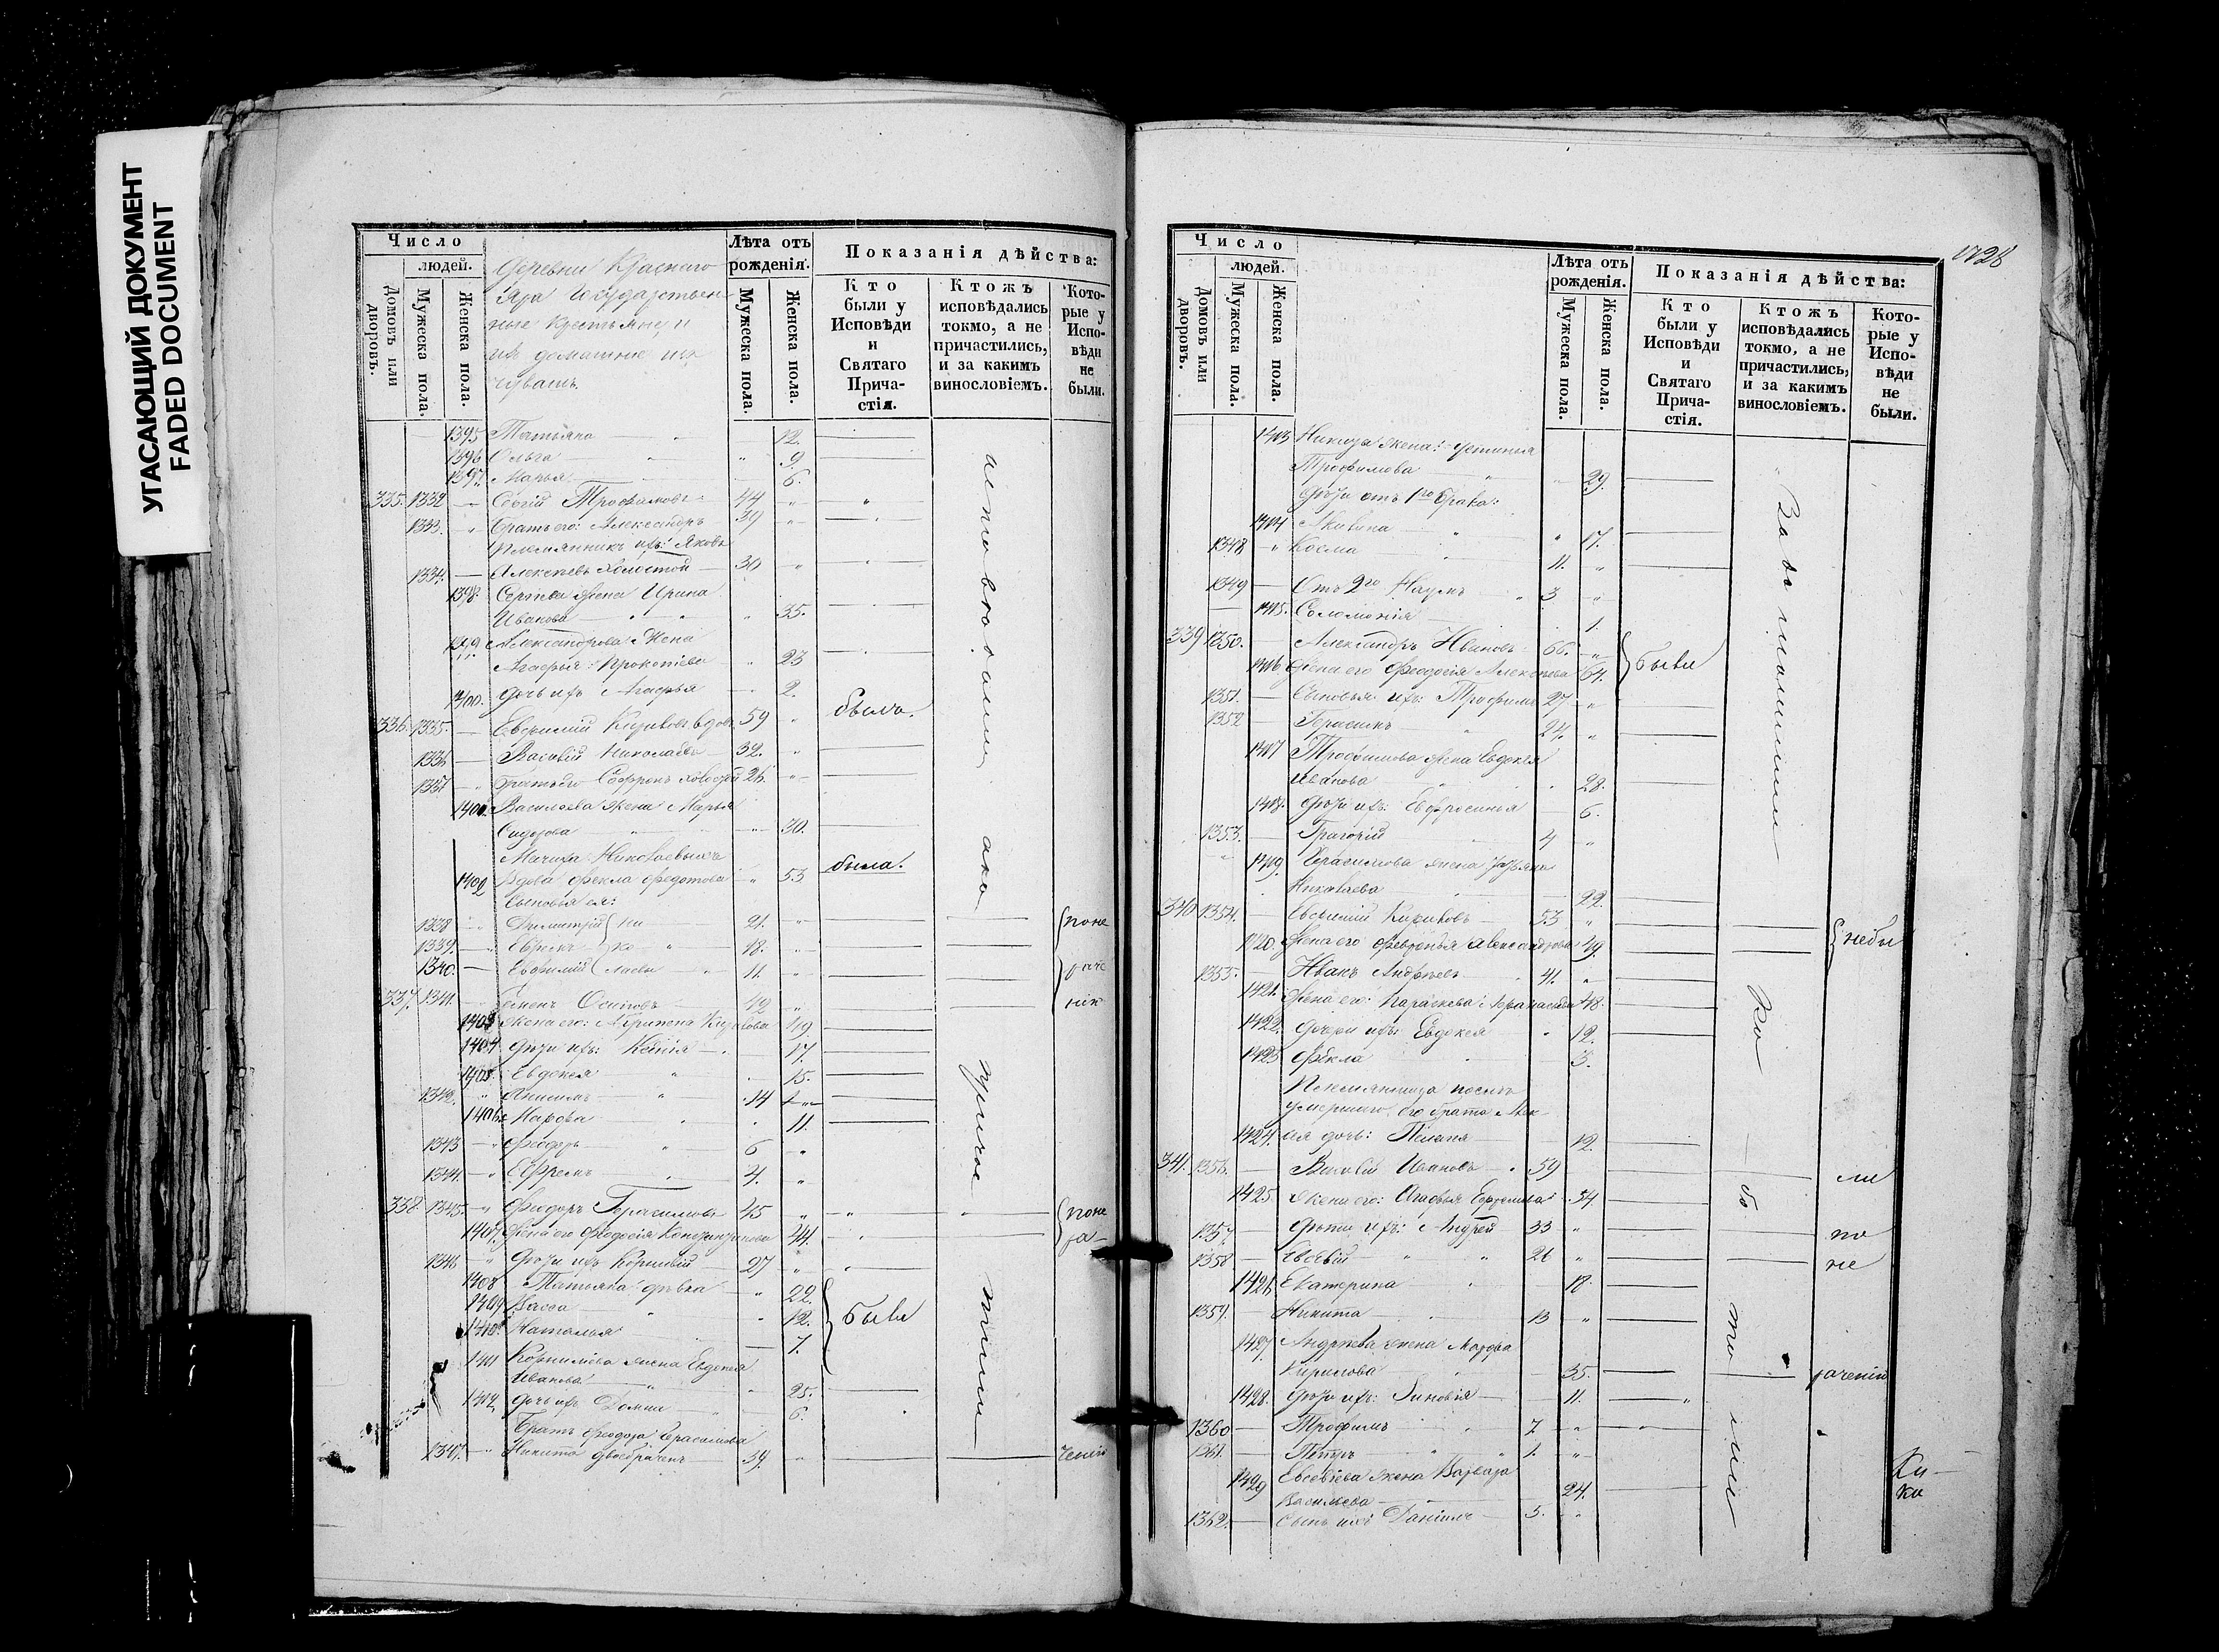 УГАСАЮЩИЙ ДОКУМЕНТ
FADED DOCUMENT
Число
людей.
Домовъ или дворовъ.
Мужеска пола.
Женска пола.
Деревни Краснаго
Яра Государствен-
ные крестьяне, и
ихъ домашніе изъ
чувашъ.
Лѣта отъ рожденія.
Мужеска пола.
Женска пола.
Показанія дѣйства:
Кто были у Исповѣди и Святаго Прича-стія.
Ктожъ исповѣдались токмо, а не причастились, и за какимъ винословіемъ.
Кото-рые у Испо-вѣди не были.
1395 Татьяна 12.
1396 Ольга " 9.
1397. Марья 6.
335. 1332 Сергій Трофимовъ 44 "
1333. Братъ его: Александръ 39 "
Племянникъ ихъ: Яковъ
1334. Алексѣевъ холостой 30 "
1398. Сергѣева жена Ирина
Иванова " 35.
1399 Александрова жена
Агафья Прокопіева " 23
1400. Дочь ихъ Агафья 2.
336. 1335. Евфимій Кириковъ вдовъ 59 " былъ.
1336 Василій Николаевъ 32. "
1337 Братъ его Софронъ холостой 26. "
1401. Василіева жена Марья
Сидорова " 30.
Мачиха Николаевыхъ
1402 Вдова Фекла Федотова " 53 была.
Сыновья ея:
1338 Димитрій 21. "
1339. Ефремъ 18. "
1340. Евфимій 11. "
337. 1341. Семенъ Осиповъ 49 "
1403 Жена его: Агрипена Кирикова 49
1404 Дѣти ихъ: Ксенія 17.
1405. Евдокея " 15.
1342. Анисимъ 14
1406. Марфа " 11.
1343 Феодоръ 6 "
1344. Ефремъ 4. "
338. 1345. Феодоръ Герасимовъ 45 "
1407. Жена его Феодосія Константинова 44.
1346 Дѣти ихъ Корнилій 27 "
1408 Татьяна дѣвка " 22.
1409 Васса " 12.
1410. Наталья 7.
Были
1411 Корнилова жена Евдокея
Иванова " 25.
1412 Дочь ихъ Домна 6.
Братъ Феодора Герасимова
1347. Никита двоебраченъ 39. "
исповѣдались а не причастились
поне
раче
нію
поне
ра-
ченію
1413 Никиты жена: Устинья
Трофимова " 29.
Дѣти отъ 1го брака:
1414 Акилина " 17.
1348 Косма 11. "
1349 Отъ 2го Наумъ 3 "
1415. Соломонія 1.
339 1350. Александръ Ивановъ 66. "
1416 Жена его Феодосія Алексѣева 64.
были
1351. Сыновья ихъ: Трофимъ 27 "
1352 Герасимъ 24. "
1417 Трофимова жена Евдокея
Иванова 28.
1418. Дѣти ихъ: Евфросинья 6.
1353. Григорій 4 "
1419. Герасимова жена Татьяна
Николаева 22.
340 1354. Евфимій Кириковъ 53 "
1420. Жена его Февронья Александрова 49.
1355. Иванъ Андреевъ 41. "
1421. Жена его: Параскева Афанасьева 48.
1422. Дочери ихъ: Евдокея 12.
1423 Фекла 3.
Племянница послѣ
умершаго его брата Лук-
1424. ія дочь: Пелагія 12.
341. 1356. Василій Ивановъ 59 "
1425 Жена его: Агафья Ефремова 54
1357. Дѣти ихъ: Андрей 33 "
1358 Евсевій " 26 "
1426 Екатерина 18.
1359. Никита 13 "
1427. Андреева жена Марфа
Кирилова 35.
1428. Дѣти ихъ: Зиновія 11.
1360 Трофимъ 7 "
1361. Петръ 1. "
1429 Евсевіева жена Варвара
Васильева 24.
1362. Сынъ ихъ Даніилъ 5. "
небы
ли
по
не
раченію
Ки-
ки